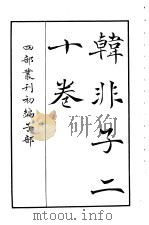 韓非子二
十卷
四部叢刊初編子部
mtoou.info